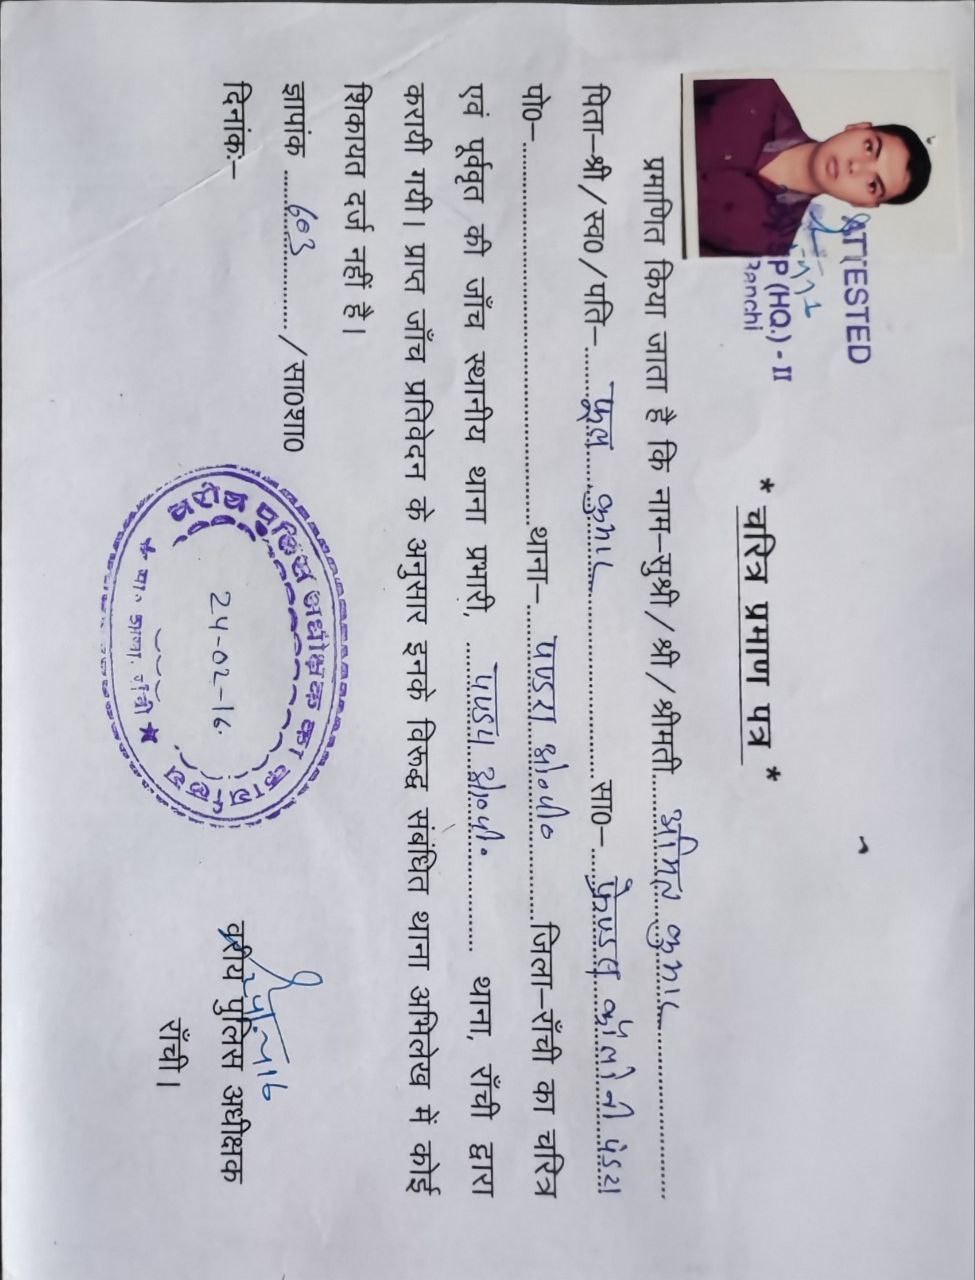 ATTESTED
SP (HQ.) - II
Ranchi
* चरित्र प्रमाण पत्र *
प्रमाणित किया जाता है कि नाम–सुश्री / श्री / श्रीमती......अमित कुमार......
पिता–श्री / स्व0 / पति–......फूल कुमार......सा0–......फ्रेण्ड्स कॉलोनी पंडरा
पो0–......थाना–......पण्डरा ओ०पी०......जिला–राँची का चरित्र
एवं पूर्ववृत की जाँच स्थानीय थाना प्रभारी, ......पण्डरा ओ०पी०...... थाना, राँची द्वारा
करायी गयी। प्राप्त जाँच प्रतिवेदन के अनुसार इनके विरूद्ध संबंधित थाना अभिलेख में कोई
शिकायत दर्ज नहीं है।
ज्ञापांक ......603....... / सा0शा0
दिनांक:–
वरीय पुलिस अधीक्षक का कार्यालय
24-02-16
वरीय पुलिस अधीक्षक
राँची।